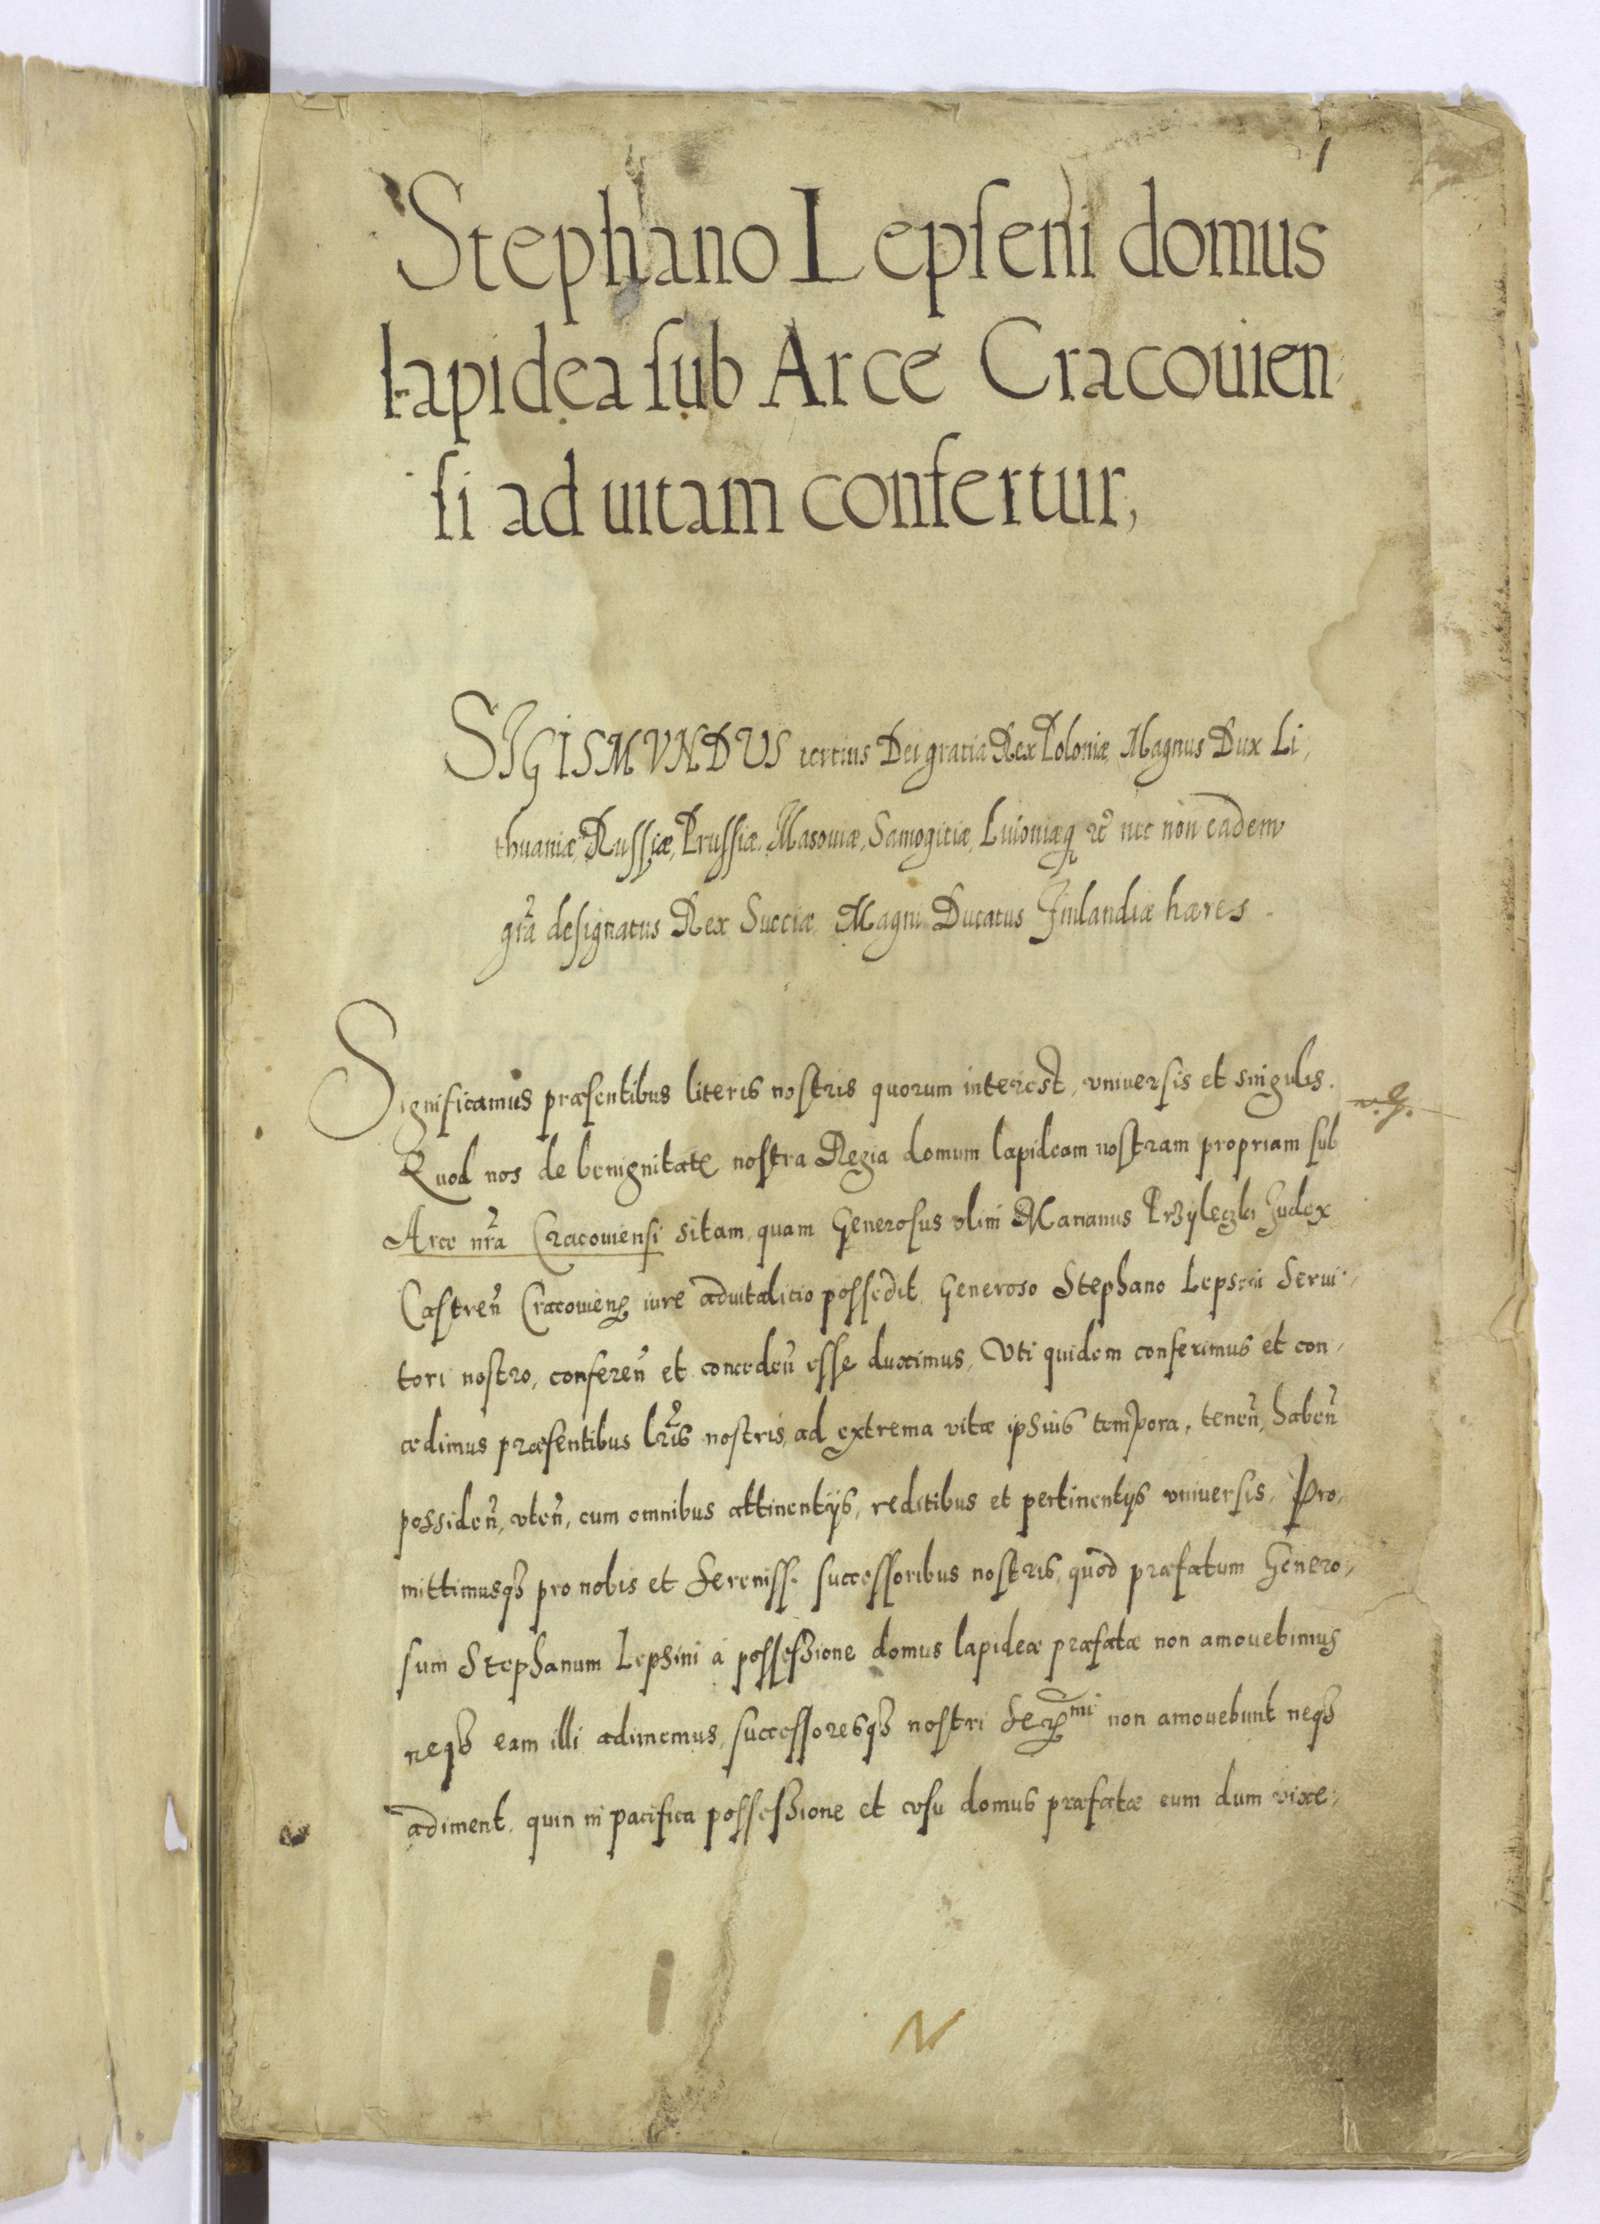 1
Stephano Lepseni domus
lapidea sub Arce Cracouien-
si ad uitam confertur,
SIGISMVNDUS tertius Dei gratia Rex Poloniæ, Magnus Dux Li,
thuaniæ, Russiæ, Prussiæ, Masouiæ, Samogitiæ, Liuoniæq; &c nec non eadem
gr̃a designatus Rex Sueciæ, Magni Ducatus Finlandiæ hæres.
Significamus præsentibus literis nostris quorum interest, vniuersis et singulis.
Quod nos de benignitate nostra Regia domum lapideam nostram propriam sub
Arce nr̃a Cracouiensi sitam, quam Generosus olim Marianus Przyleczki Judex
Castren̄ Cracouien̄ iure aduitalitio possedit, Generoso Stephano Lepseni Serui-
tori nostro, conferen̄ et conceden̄ esse duximus, Vti quidem conferimus et con-
cedimus præsentibus lr̃is nostris, ad extrema vitæ ipsius tempora, tenen̄, haben̄
possiden̄, vten̄, cum omnibus attinentijs, reditibus et pertinentijs vniuersis, Pro-
mittimusq; pro nobis et Sereniss. successoribus nostris, quod præfatum Genero-
sum Stephanum Lepsini à possessione domus lapideæ præfatæ non amouebimus
neq; eam illi adimemus, successoresq; nostri Ser̃mi non amouebunt neq;
adiment, quin in pacifica possessione et vsu domus præfatæ eum dum vixe-